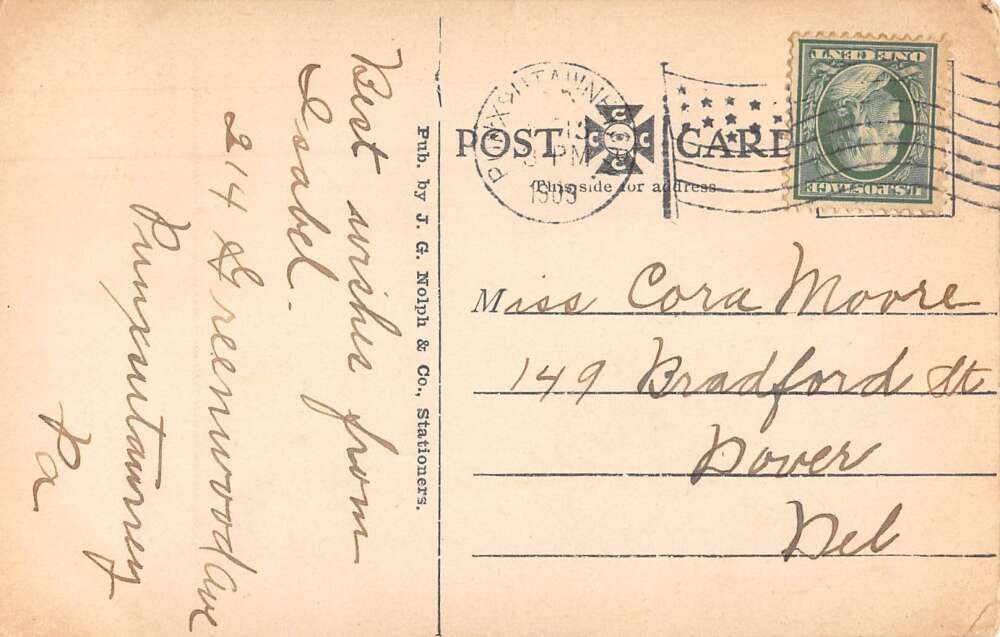 Best wishes from
Isabel.
214 Greenwood Ave
Punxsutawney
Pa
Pub. by J. G. Nolph & Co., Stationers.
POST CARD
This side for address
1909
ONE CENT
U.S. POSTAGE
Miss Cora Moore
149 Bradford St
Dover
Del